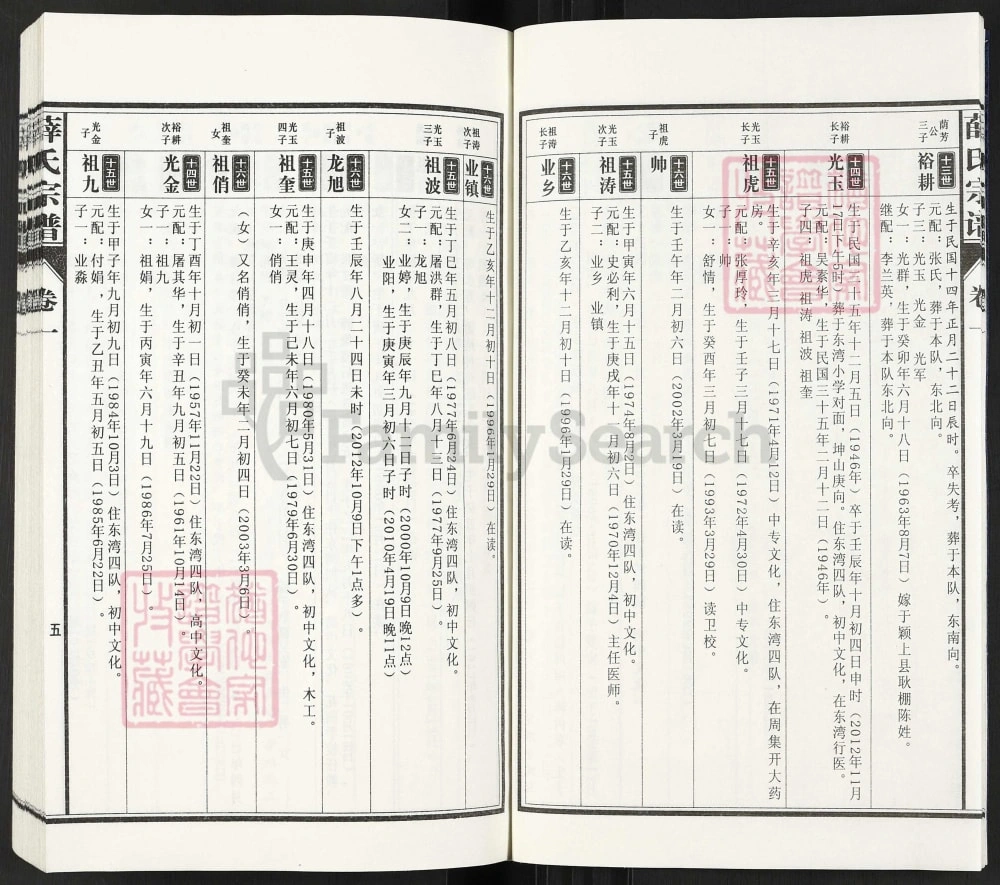 薛氏宗谱
卷一
荫芳公三子
十三世
裕耕
生于民国十四年正月二十二日辰时。卒失考，葬于本队，东南向。
元配：张氏，葬于本队，东北向。
子三：光玉 光金 光军
女一：光群，生于癸卯年六月十八（1963年8月7日）嫁于颍上县耿棚陈姓。
继配：李兰英，葬于本队东北向。
裕耕长子
十四世
光玉
生于民国三十五年十二月五日（1946年）卒于壬辰年十月初四日申时（2012年11月
17日下午5时）葬于东湾小学对面，坤山庚向。住东湾四队，初中文化，在东湾行医。
元配：吴素华，生于民国三十五年二月十一日（1946年）。
子四：祖虎 祖涛 祖波 祖奎
光玉长子
十五世
祖虎
生于辛亥年三月十七（1971年4月12日）中专文化，住东湾四队，在周集开大药
房。
元配：张厚玲，生于壬子三月十七日（1972年4月30日）中专文化。
子一：帅
女一：舒情，生于癸酉年三月初七（1993年3月29日）读卫校。
祖虎子
十六世
帅
生于壬午年二月初六日（2002年3月19日）在读。
光玉次子
十五世
祖涛
生于甲寅年六月十五日（1974年8月2日）住东湾四队，初中文化。
元配：史必利，生于庚戌年十一月初六日（1970年12月4日）主任医师。
子二：业乡 业镇
祖涛长子
十六世
业乡
生于乙亥年十二月初十日（1996年1月29日）在读。
祖涛次子
十六世
业镇
生于乙亥年十二月初十日（1996年1月29日）在读。
光玉三子
十五世
祖波
生于丁巳年五月初八日（1977年6月24日）住东湾四队，初中文化。
元配：屠洪群，生于丁巳年八月十三日（1977年9月25日）。
子一：龙旭
女二：业婷，生于庚辰年九月十二日子时（2000年10月9日晚12点）
业阳，生于庚寅年三月初六日子时（2010年4月19日晚11点）
祖波子
十六世
龙旭
生于壬辰年八月二十四日未时（2012年10月9日下午1点多）。
光玉四子
十五世
祖奎
生于庚申年四月十八日（1980年5月31日）住东湾四队，初中文化，木工。
元配：王灵，生于己未年六月初七日（1979年6月30日）。
女一：俏俏
祖奎女
十六世
祖俏
（女）又名俏俏，生于癸未年二月初四日（2003年3月6日）。
裕耕次子
十四世
光金
生于丁酉年十月初一日（1957年11月22日）住东湾四队，高中文化。
元配：屠其华，生于辛丑年九月初五日（1961年10月14日）。
子一：祖九
女一：祖娟，生于丙寅年六月十九日（1986年7月25日）。
光金子
十五世
祖九
生于甲子年九月初九日（1984年10月3日）住东湾四队，初中文化。
元配：付娟，生于乙丑年五月初五日（1985年6月22日）。
子一：业淼
薛氏宗谱
卷一
五
FamilySearch